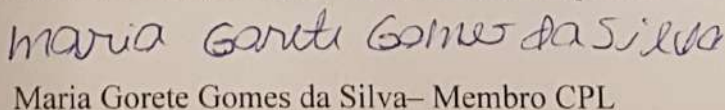 maria Gorete Gomes da Silva
Maria Gorete Gomes da Silva– Membro CPL